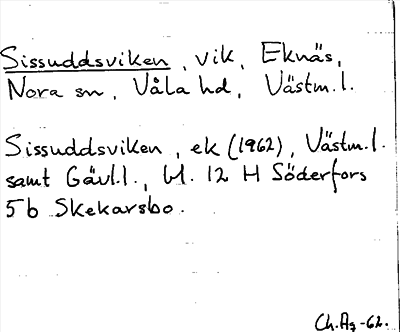 Sissuddsviken, vik, Eknäs,
Nora sn, Våla hd, Västm.l.
Sissuddsviken, ek (1962), Västm.l.
samt Gävl.l., bl. 12 H Söderfors
5b Skekarsbo.
Ch.Ag -62.